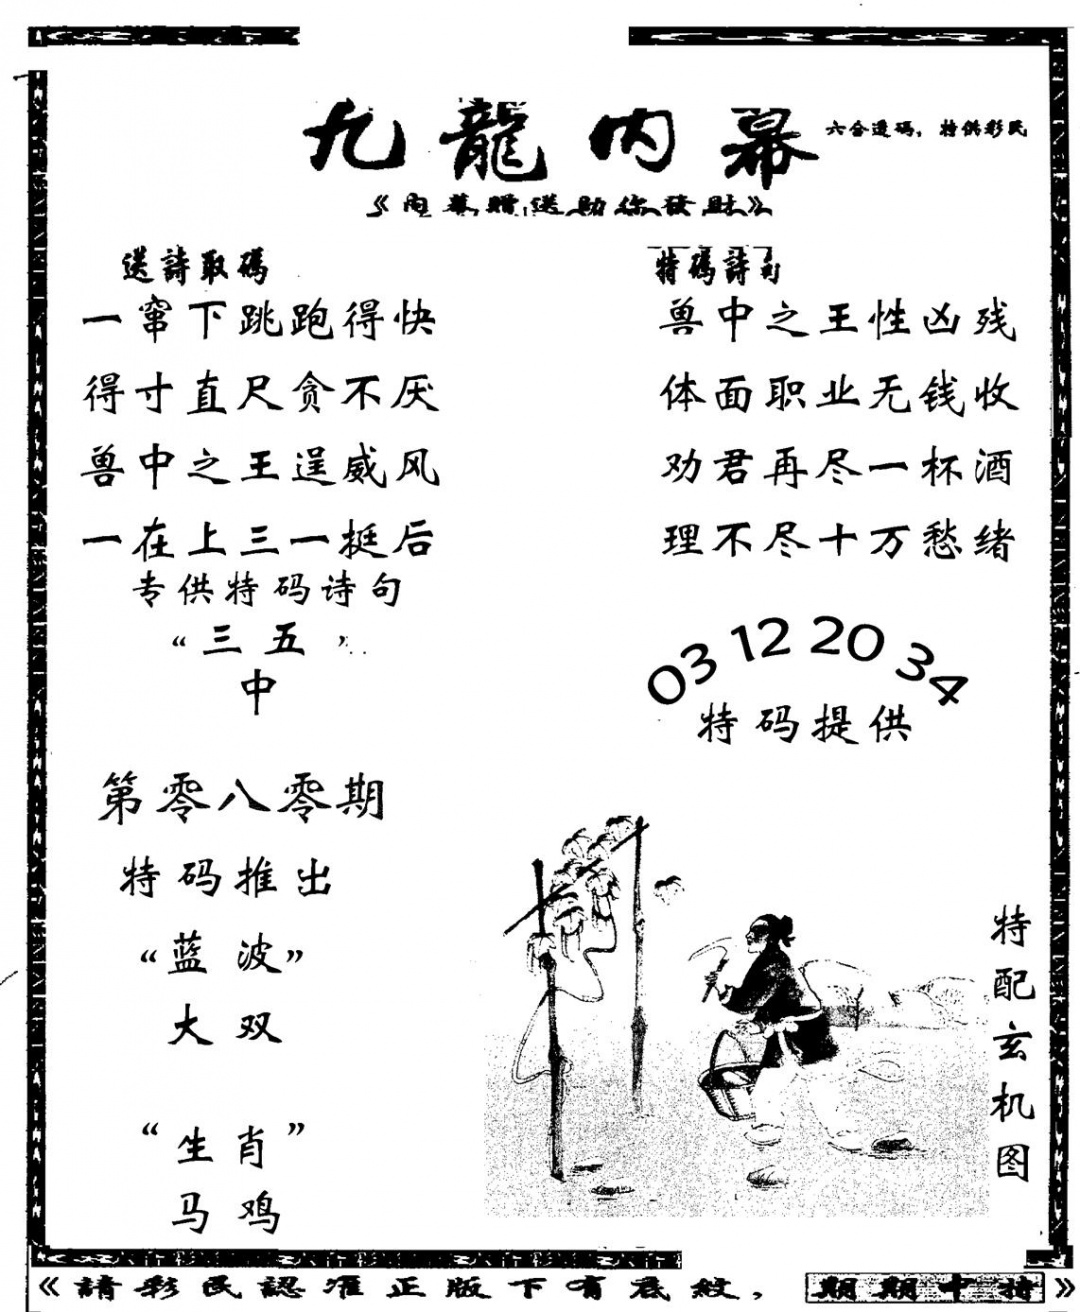 九龍内幕
六合透码，特供彩民
《内幕赠送助你發財》
送詩取碼
一窜下跳跑得快
得寸直尺贪不厌
兽中之王逞威风
一在上三一挺后
专供特码诗句
“三五
中
特碼詩句
兽中之王性凶残
体面职业无钱收
劝君再尽一杯酒
理不尽十万愁绪
03 12 20 34
特码提供
第零八零期
特码推出
“蓝波”
大双
“生肖”
马鸡
特配玄机图
《請彩民認准正版下有底紋，期期中特》